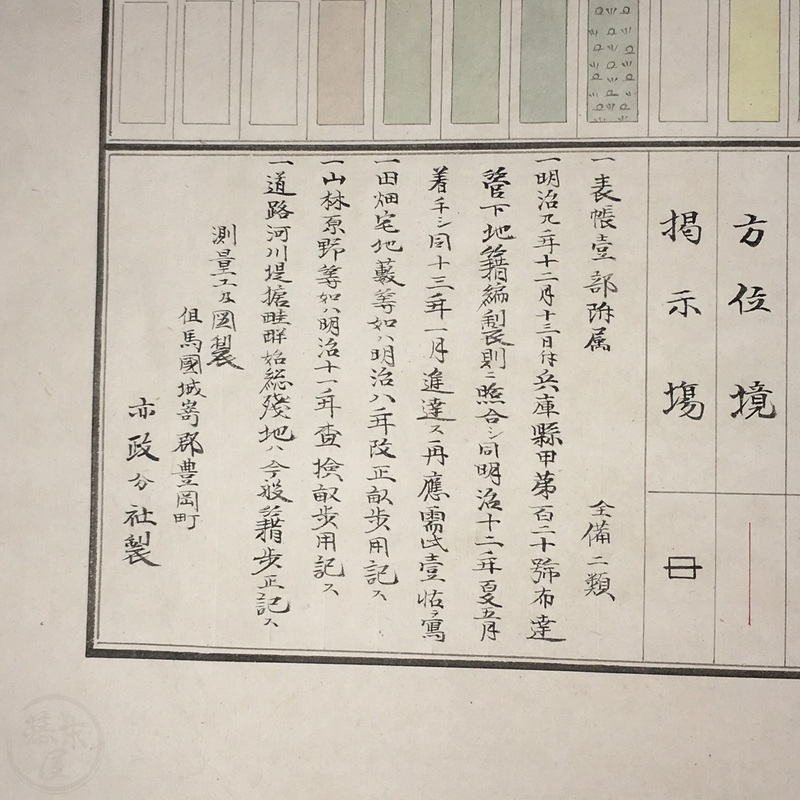 方位境
掲示場
一表帳壹部附属 全備二類
一明治九年十二月十三日付兵庫縣甲第百二十號布達
管下地籍編製規則ニ照合シ同明治十二年五月
着手シ同十三年一月進達ス再應需ニ壹ヲ寫
一田畑宅地藪等如ハ明治八年改正畝歩用記ス
一山林原野等如ハ明治十一年査検畝歩用記ス
一道路河川堤塘畦畔始総残地ハ今般籍歩正記ス
測量工及図製
但馬國城嵜郡豊岡町
亦政分社製